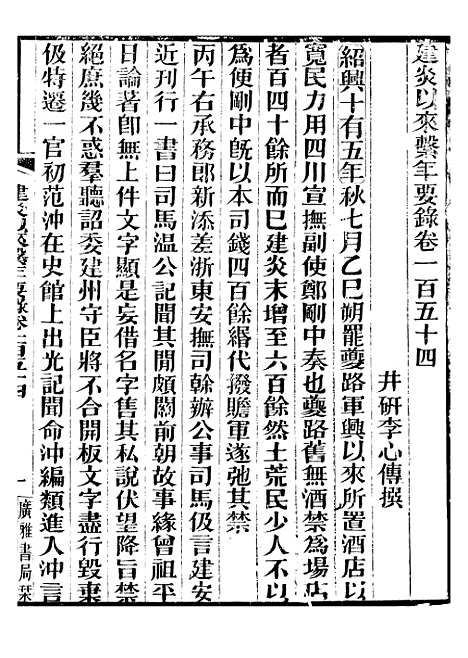 建炎以來繫年要錄卷一百五十四
井研李心傳撰
紹興十有五年秋七月乙巳朔罷夔路軍興以來所置酒店以
寬民力用四川宣撫副使鄭剛中奏也夔路舊無酒禁為場店
者百四十餘所而已建炎末增至六百餘然土荒民少人不以
為便剛中旣以本司錢四百餘緡代撥贍軍遂弛其禁
丙午右承務郎新添差浙東安撫司幹辦公事司馬伋言建安
近刊行一書曰司馬溫公記聞其間頗關前朝故事緣曾祖平
日論著卽無上件文字顯是妄借名字售其私說伏望降旨禁
絕庶幾不惑羣聽詔委建州守臣將不合開板文字盡行毀棄
伋特遷一官初范沖在史館上出光記聞命沖編類進入沖言
建炎以來繫年要錄卷一百五十四
一
廣雅書局栞